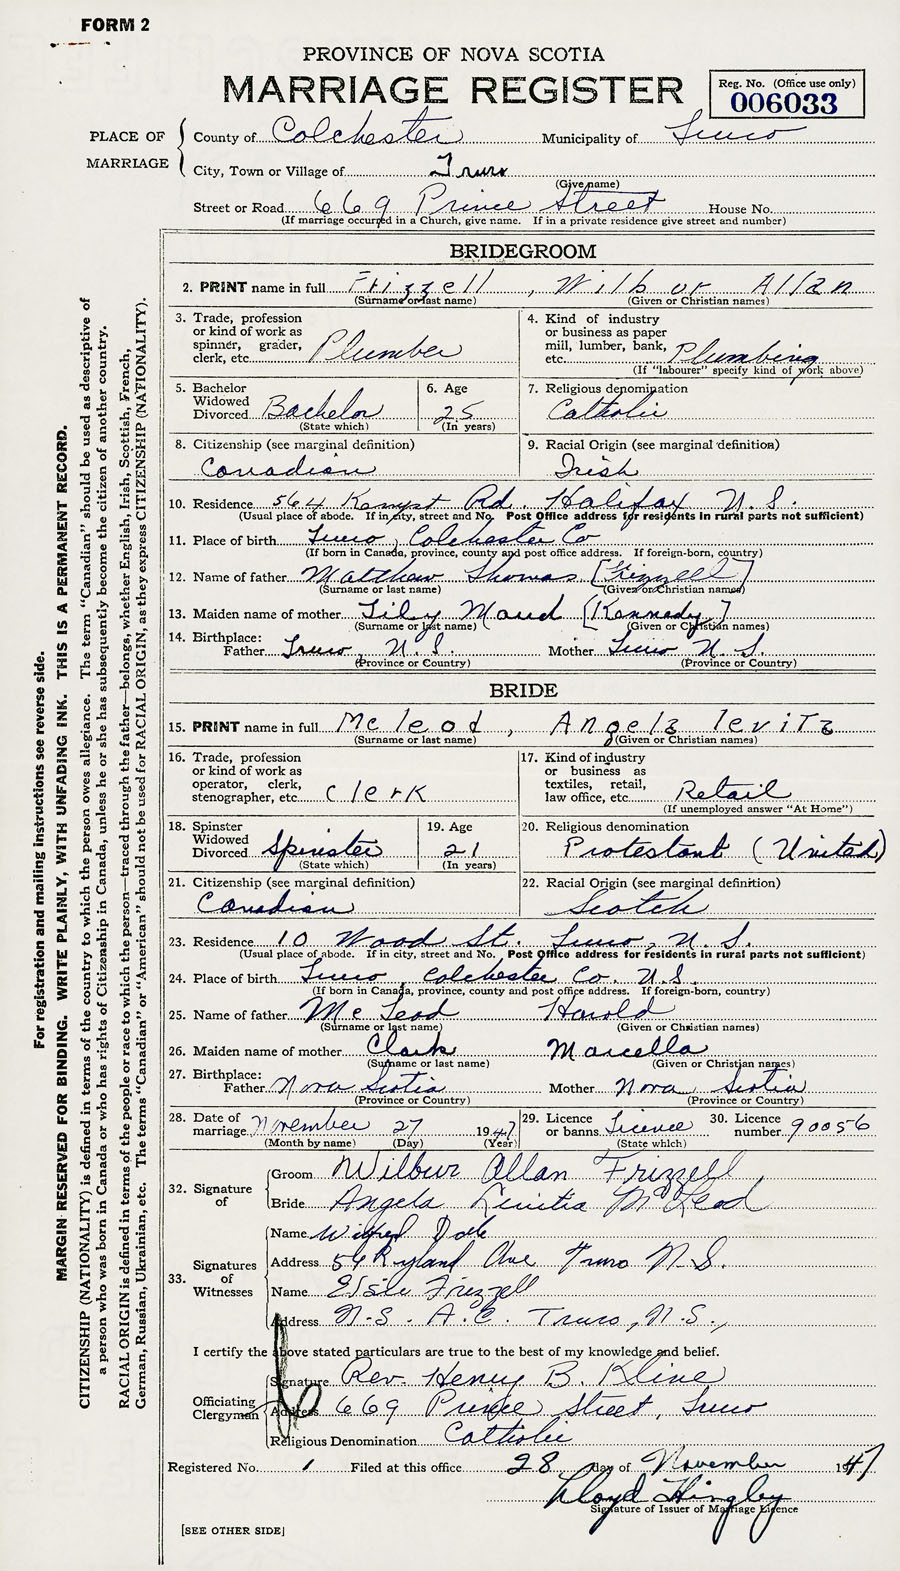 FORM 2
PROVINCE OF NOVA SCOTIA
MARRIAGE REGISTER
Reg. No. (Office use only)
006033
PLACE OF MARRIAGE
County of Colchester Municipality of Truro
City, Town or Village of Truro
(Give name)
Street or Road 669 Prince Street House No.
(If marriage occurred in a Church, give name. If in a private residence give street and number)
BRIDEGROOM
2. PRINT name in full Frizzell, Wilbur Allan
(Surname or last name) (Given or Christian names)
3. Trade, profession or kind of work as spinner, grader, clerk, etc. Plumber
4. Kind of industry or business as paper mill, lumber, bank, etc. Plumbing
(If "labourer" specify kind of work above)
5. Bachelor Widowed Divorced Bachelor
(State which)
6. Age 25
(In years)
7. Religious denomination
Catholic
8. Citizenship (see marginal definition)
Canadian
9. Racial Origin (see marginal definition)
Irish
10. Residence 564 Kempt Rd. Halifax N.S.
(Usual place of abode. If in city, street and No. Post Office address for residents in rural parts not sufficient)
11. Place of birth Truro, Colchester Co
(If born in Canada, province, county and post office address. If foreign-born, country)
12. Name of father Matthew Thomas [Frizzell]
(Surname or last name) (Given or Christian names)
13. Maiden name of mother Lily Maud [Kennedy]
(Surname or last name) (Given or Christian names)
14. Birthplace:
Father Truro, N.S. Mother Truro N.S.
(Province or Country) (Province or Country)
BRIDE
15. PRINT name in full McLeod, Angela Levitz
(Surname or last name) (Given or Christian names)
16. Trade, profession or kind of work as operator, clerk, stenographer, etc. Clerk
17. Kind of industry or business as textiles, retail, law office, etc. Retail
(If unemployed answer "At Home")
18. Spinster Widowed Divorced Spinster
(State which)
19. Age 21
(In years)
20. Religious denomination
Protestant (United)
21. Citizenship (see marginal definition)
Canadian
22. Racial Origin (see marginal definition)
Scotch
23. Residence 10 Wood St. Truro, N.S.
(Usual place of abode. If in city, street and No. Post Office address for residents in rural parts not sufficient)
24. Place of birth Truro Colchester Co. N.S.
(If born in Canada, province, county and post office address. If foreign-born, country)
25. Name of father McLeod Harold
(Surname or last name) (Given or Christian names)
26. Maiden name of mother Clark Marcella
(Surname or last name) (Given or Christian names)
27. Birthplace:
Father Nova Scotia Mother Nova Scotia
(Province or Country) (Province or Country)
28. Date of marriage November 27 1947
(Month by name) (Day) (Year)
29. Licence or banns Licence
(State which)
30. Licence number 90056
32. Signature of
Groom Wilbur Allan Frizzell
Bride Angela McLeod
33. Signatures of Witnesses
Name Wilfred
Address Ave Truro N.S.
Name Elsie Frizzell
Address N.S. A.C. Truro, N.S.,
I certify the above stated particulars are true to the best of my knowledge and belief.
Officiating Clergyman
Signature Rev. Henry B. Kline
Address 669 Prince Street, Truro
Religious Denomination Catholic
Registered No. 1 Filed at this office 28 day of November 1947
Lloyd Hingley
Signature of Issuer of Marriage Licence
[SEE OTHER SIDE]
For registration and mailing instructions see reverse side.
MARGIN RESERVED FOR BINDING. WRITE PLAINLY, WITH UNFADING INK. THIS IS A PERMANENT RECORD.
CITIZENSHIP (NATIONALITY) is defined in terms of the country to which the person owes allegiance. The term "Canadian" should be used as descriptive of
a person who was born in Canada or who has rights of Citizenship in Canada, unless he or she has subsequently become the citizen of another country.
RACIAL ORIGIN is defined in terms of the people or race to which the person—traced through the father—belongs, whether English, Irish, Scottish, French,
German, Russian, Ukrainian, etc. The terms "Canadian" or "American" should not be used for RACIAL ORIGIN, as they express CITIZENSHIP (NATIONALITY).